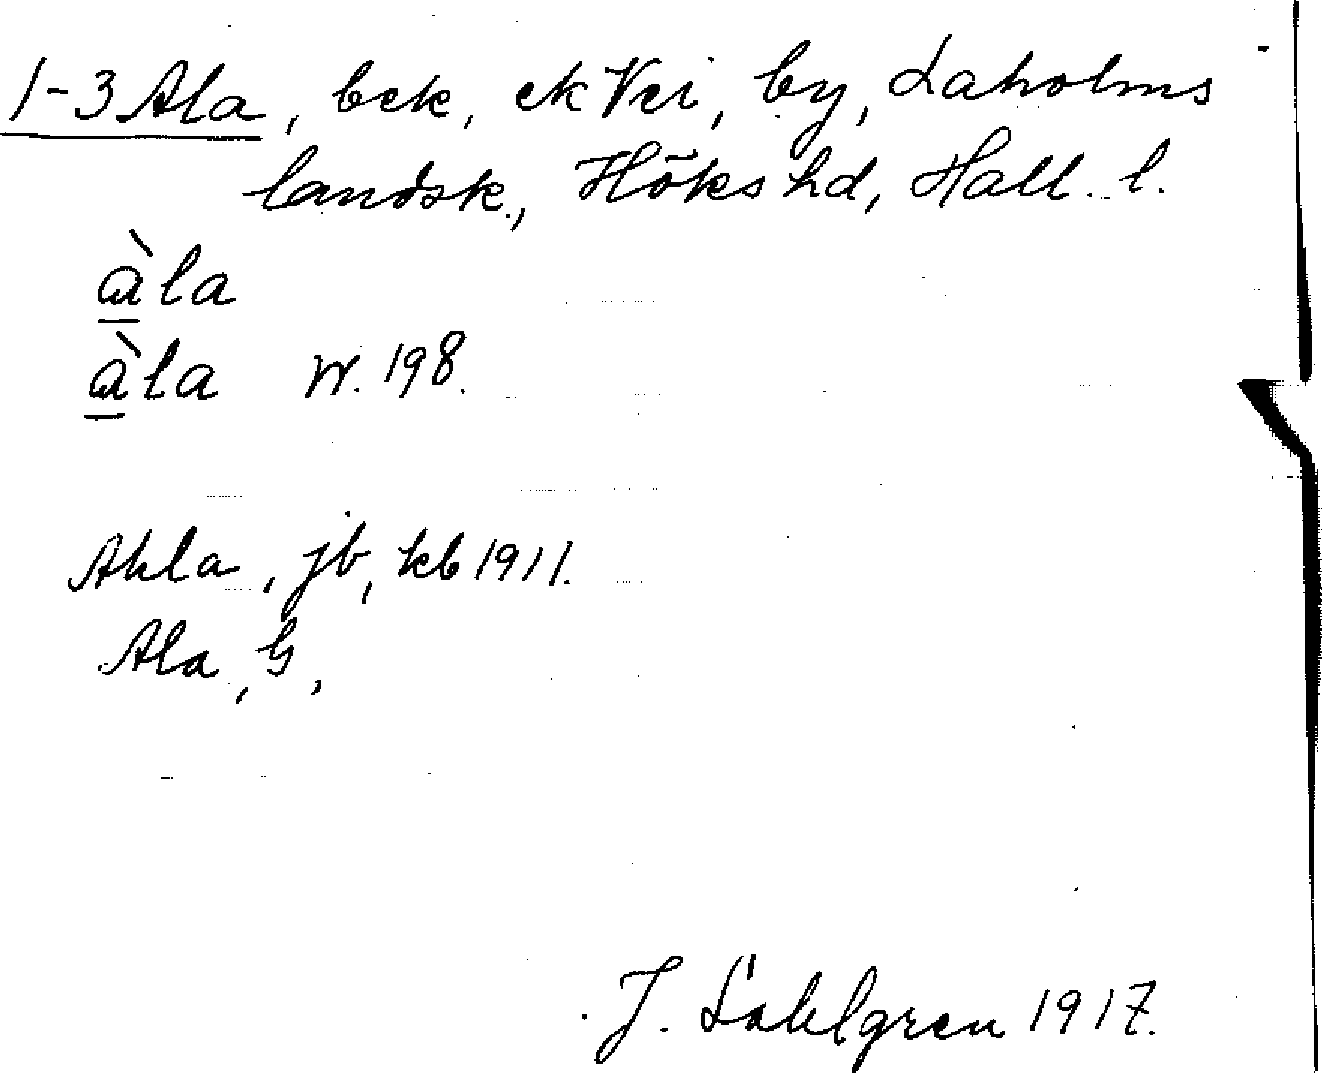 1-3 Ala, bek, ek Vei, by, Laholms
landsk., Höks hd, Hall. l.
àla
àla W. 198.
Ahla, jb, kb 1911.
Ala, G,
J. Sahlgren 1917.